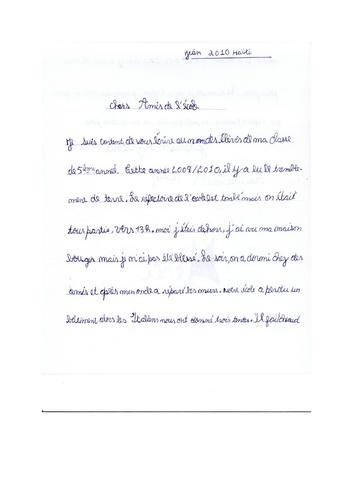 juin 2010 Haïti
Chers Amis de l'école
Je suis content de vous écrire au nom des élèves de ma classe
de 5ème année. Cette année 2009/2010, il y a eu le tremble-
ment de terre. Le réfectoire de l'école est tombé mais on était
tous partis. Vers 13h, moi j'étais dehors, j'ai vu ma maison
bouger mais je n'ai pas été blessé. Le soir, on a dormi chez des
amis et après mon oncle a réparé les murs. Notre école a perdu un
bâtiment alors les Italiens nous ont donné trois tentes. Il fait chaud